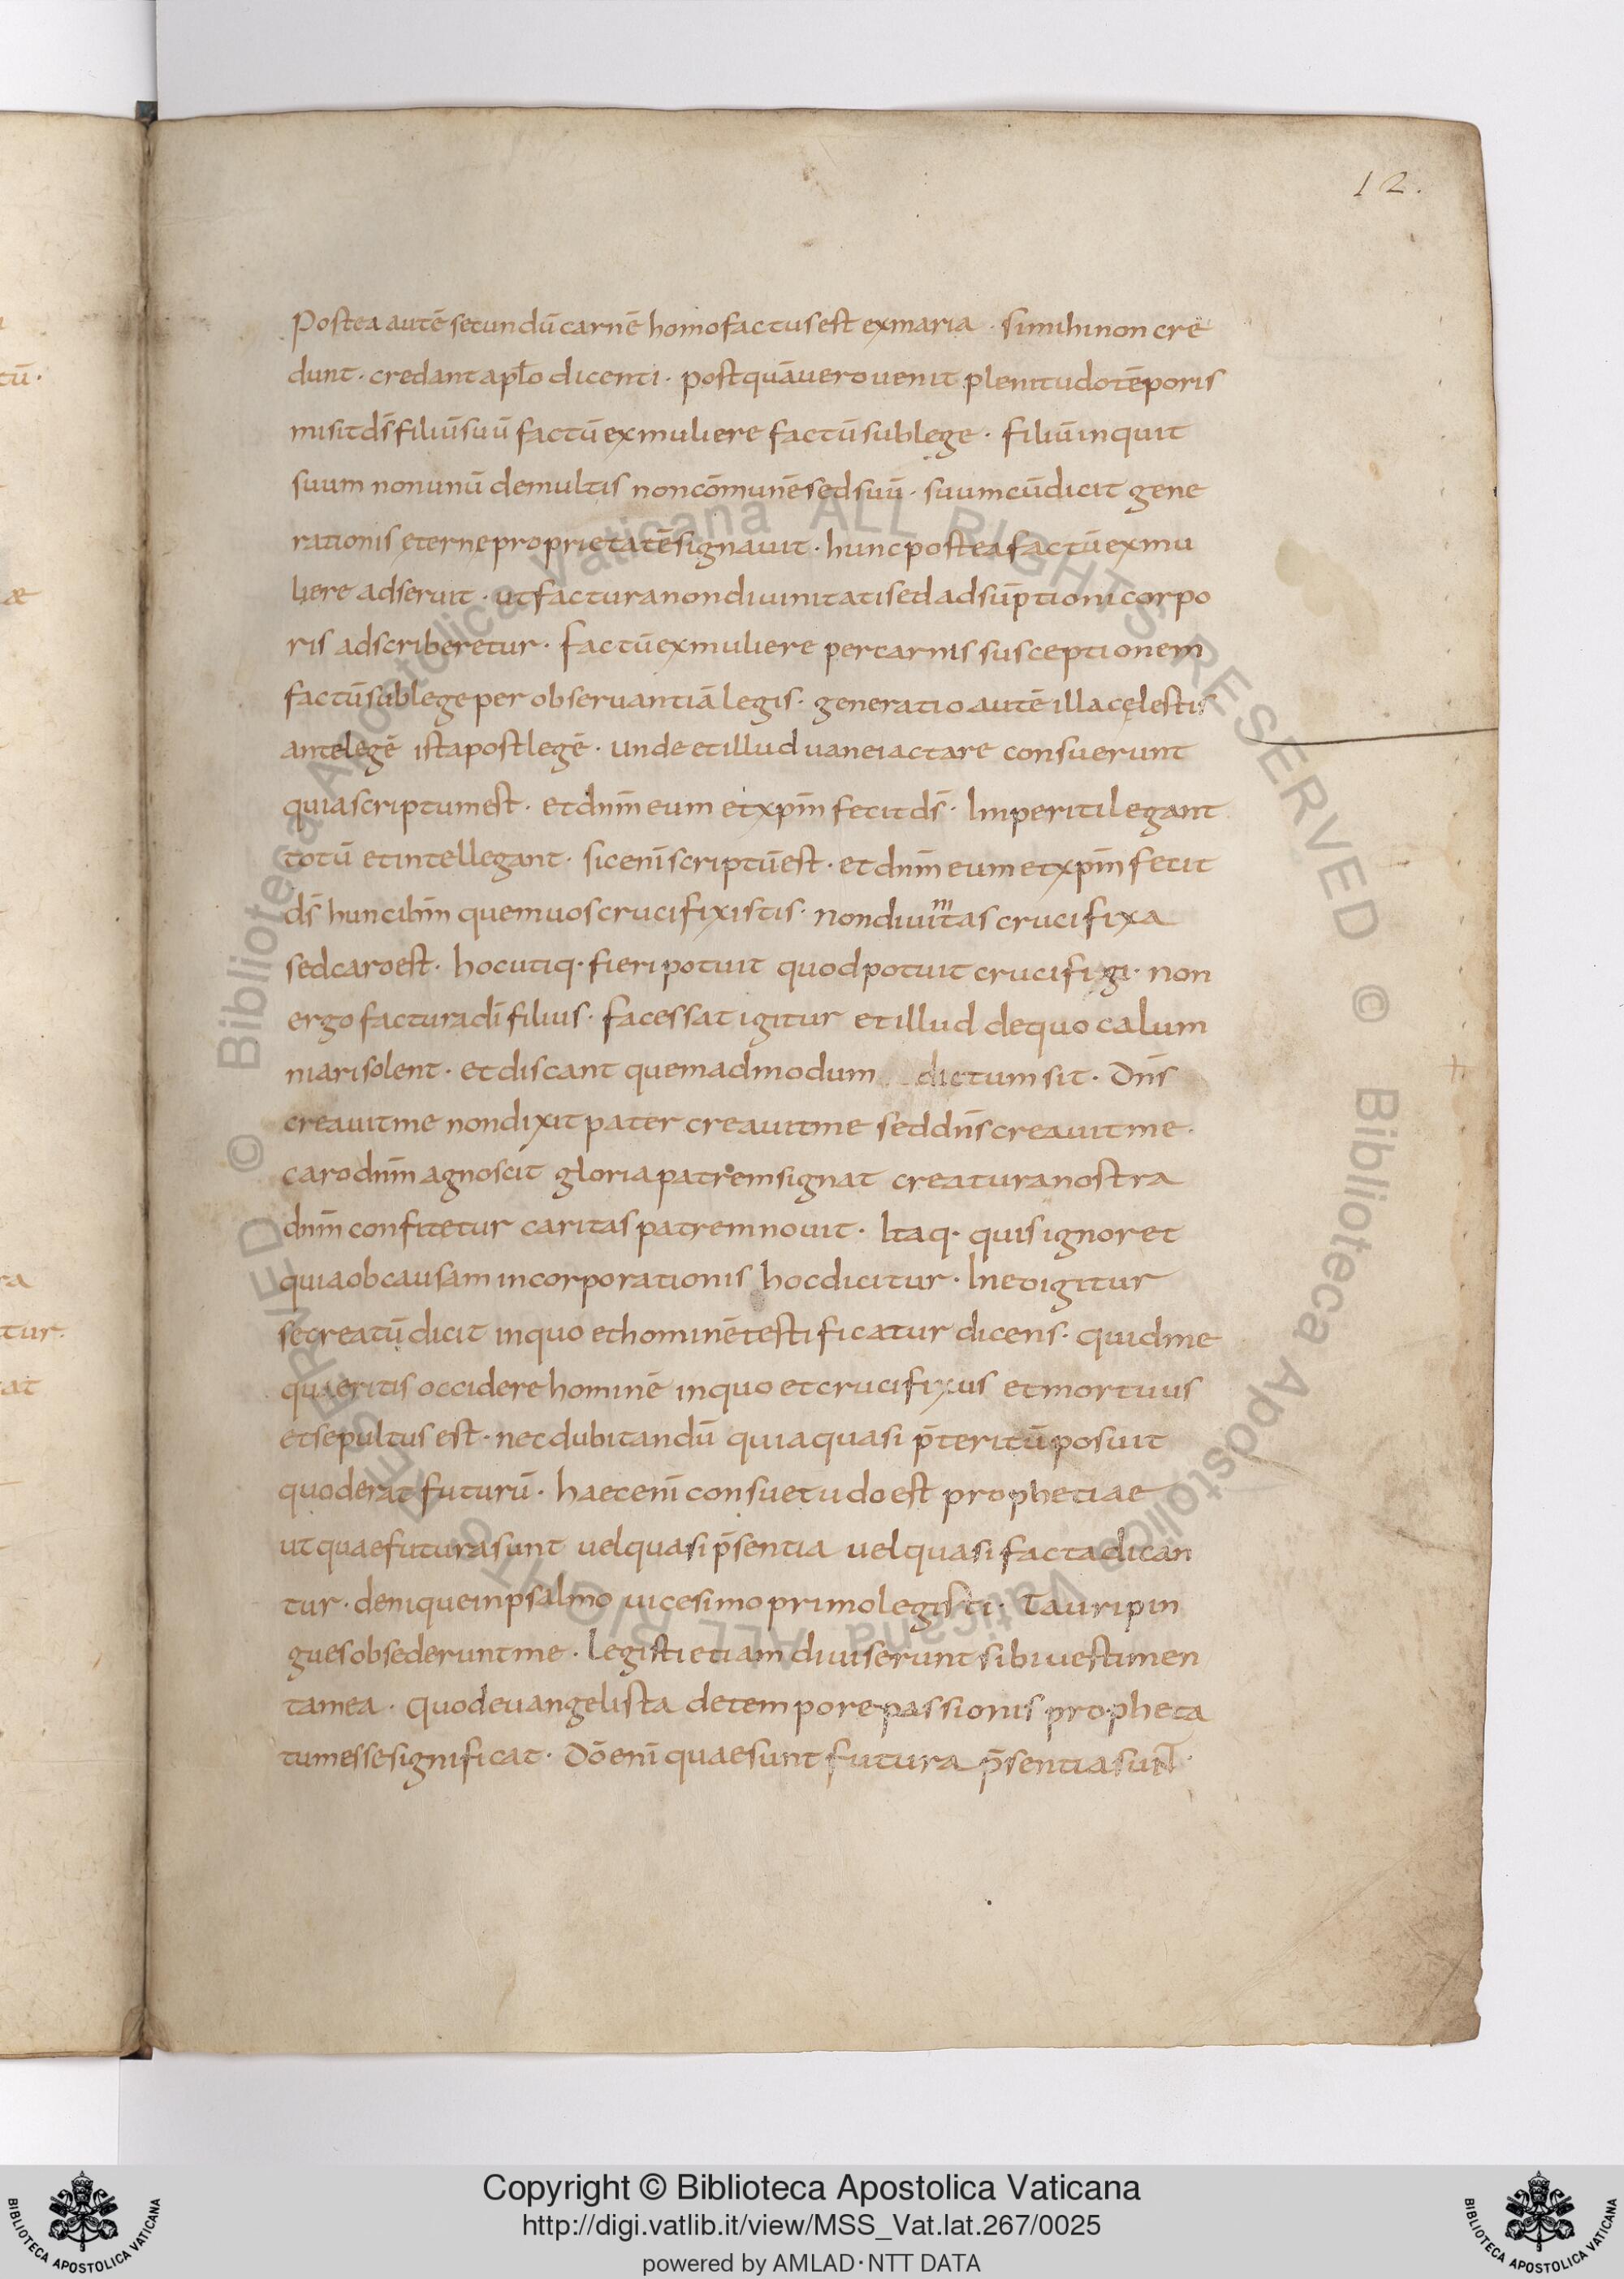 12.
Postea autē secundū carnē homo factus est ex maria · si mihi non cre
dunt · credant aplo dicenti · postquā vero uenit plenitudo tēporis
misit ds̄ filiū suū factū ex muliere factū sub lege · filiū inquit
suum non unū de multis non cōmunē sed suū · suum cū dicit gene
rationis ęterne proprietatē signauit · hunc postea factū ex mu
liere adseruit · ut factura non diuinitati sed adsūptioni corpo
ris adscriberetur · factū ex muliere per carnis susceptionem
factū sub lege per obseruantiā legis · generatio autē illa cęlestis
ante legē ista post legē · unde et illud uane iactare consuerunt
quia scriptum est · et dnm̄ eum et xpm̄ fecit ds̄ · Imperiti legant
totū et intellegant · sic enī scriptū est · et dnm̄ eum et xpm̄ fecit
ds̄ hunc ihm̄ quem uos crucifixistis · non diuinitas crucifixa
sed caro est · hoc utiq· fieri potuit quod potuit crucifigi · non
ergo factura dī filius · facessat igitur et illud de quo calum
niari solent · et discant quemadmodum dictum sit · Dns̄
creauit me non dixit pater creauit me sed dns̄ creauit me ·
caro dnm̄ agnoscit gloria patrem signat creatura nostra
dnm̄ confitetur caritas patrem nouit · Itaq· quis ignoret
quia ob causam incorporationis hoc dicitur · In eo igitur
se creatū dicit in quo et hominē testificatur dicens · quid me
quaeritis occidere hominē in quo et crucifixus et mortuus
et sepultus est · nec dubitandū quia quasi p̄teritū posuit
quod erat futurū · haec enī consuetudo est prophetiae
ut quae futura sunt uel quasi p̄sentia uel quasi facta dican
tur · denique in psalmo uicesimo primo legisti · Tauri pin
gues obsederunt me · legisti etiam diuiserunt sibi uestimen
ta mea · quod euangelista de tempore passionis propheta
tum esse significat · Dō enī quae sunt futura p̄sentia sunt ·
tū ·
æ
ra
tur ·
at
Copyright © Biblioteca Apostolica Vaticana
http://digi.vatlib.it/view/MSS_Vat.lat.267/0025
powered by AMLAD · NTT DATA
BIBLIOTECA APOSTOLICA VATICANA
BIBLIOTECA APOSTOLICA VATICANA
© Biblioteca Apostolica Vaticana ALL RIGHTS RESERVED
© Biblioteca Apostolica Vaticana ALL RIGHTS RESERVED